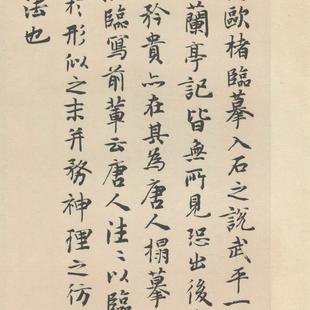 歐楮臨摹入石之說武平一
蘭亭記皆無所見恐出後
矜貴亦在其為唐人搨摹
臨寫前輩云唐人往〻以臨
於形似之末并務神理之彷
法也